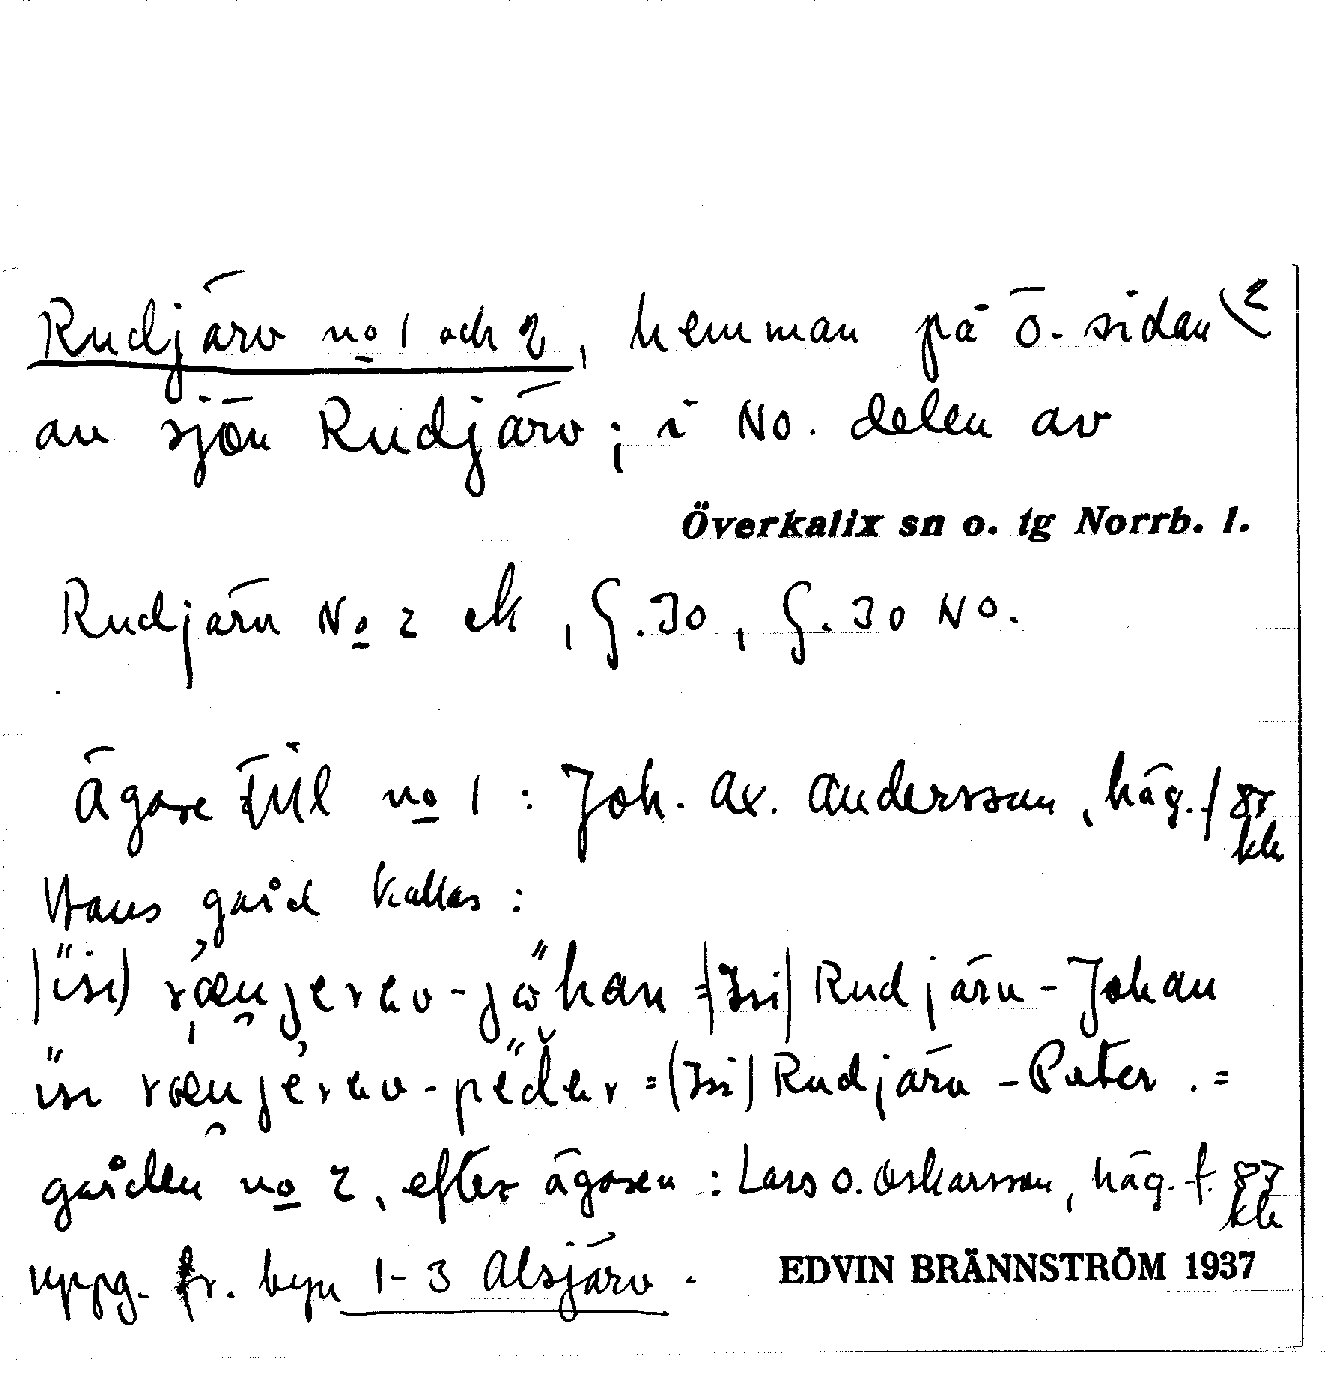 Rudjärv no 1 och 2, hemman på ö. sidan 2
av sjön Rudjärv; i NO. delen av
Överkalix sn o. tg Norrb. l.
Rudjärv No 2 ek, G. 30, G. 30 NO.
Ägare till no 1: Joh. Ax. Andersson, häg. f. 87
kk
Hans gård kallas:
Rudjärv-Johan
Rudjärv-Peter. =
gården no 2, efter ägaren: Lars O. Oskarsson, häg. f. 87
kk
uppg. fr. byn 1-3 Alsjärv. EDVIN BRÄNNSTRÖM 1937